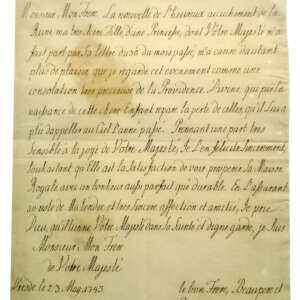 Monsieur Mon Frere. La nouvelle de l'heureux accouchement de la
Reine, ma tres chere Fille, d'une Princesse, dont Votre Majesté m'a
fait part par sa lettre du du mois passé, m'a causé d'autant
plus de plaisir que je regarde cet evenement comme une
consolation tres precieuse de la Providence Divine, que par la
naissance de cette chere Enfant repare la perte de celle, qu'il Lui a
plu d'appeller au Ciel l'année passé. Prennant une part tres
sensible a la joye de Votre Majesté, Je L'en felicite sincerement,
souhaitant qu'Elle ait la satisfaction de voir prosperer sa Maison
Royale avec un bonheur aussi parfait que durable. En L'assurant
au reste de Ma tendre et tres sincere affection et amitié, Je prie
Dieu, qu'il tienne Votre Majesté dans sa Sainte et digne garde, je suis
Monsieur Mon Frere
de Votre Majesté
le 23 May 1743.
le bon Frere, Beaupere et